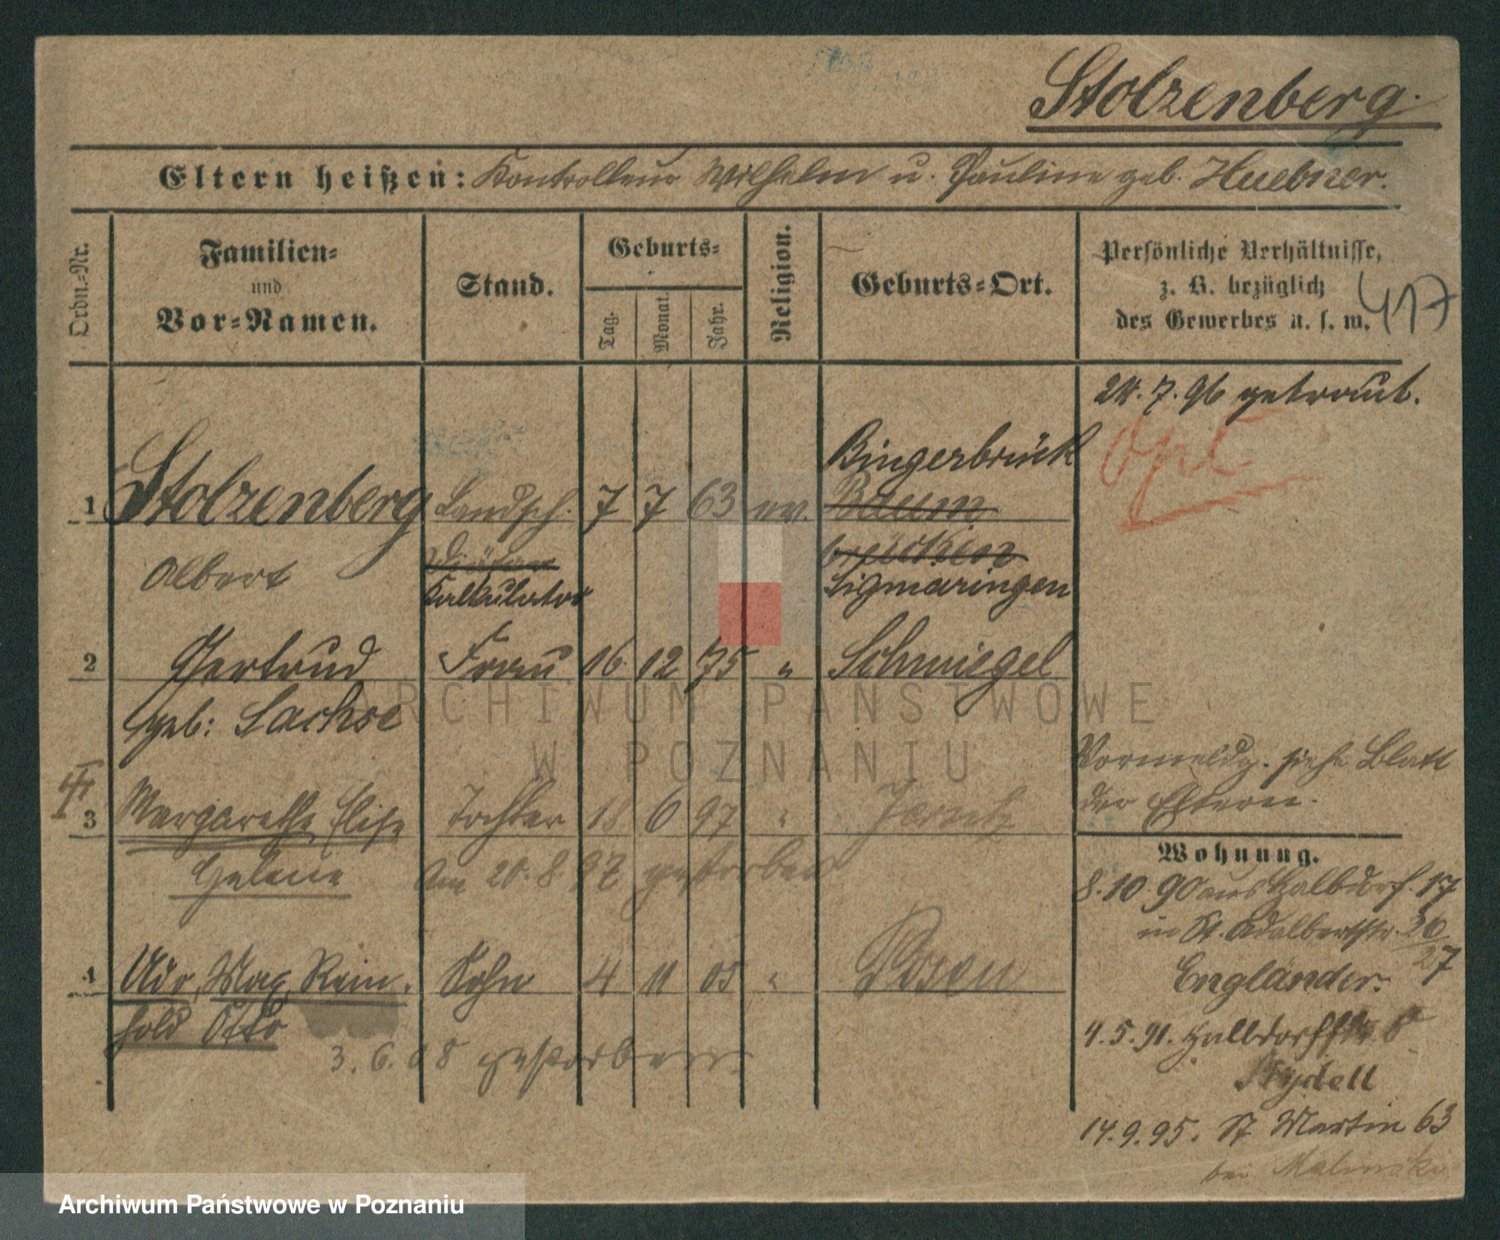 Stolzenberg.
Eltern heißen: Kontrolleur Wilhelm u. Pauline geb. Huebner.
Ordn.-Nr.
Familien- und Vor-Namen.
Stand.
Geburts-
Tag.
Monat.
Jahr.
Religion.
Geburts-Ort.
Persönliche Verhältnisse,
z. B. bezüglich
des Gewerbes u. s. w.
417
24. 7. 96 getraut.
Bingerbrück
1 Stolzenberg Landsch. 7 7 63 ev. Baum
brücken
Albert Kalkulator Sigmaringen
2 Gertrud Frau 16. 12 75 " Schmiegel
geb: Sachse
Vormeldg. siehe Blatt
der Eltern.
3 Margarethe Elise Tochter 18 6 97 " Jersitz
Helene am 20. 8 97 gestorben
Wohnung.
8. 10. 90 aus Halbdorf. 17
in St. Adalbertstr. 26
27
Engländer.
4 Udo, Max, Rein- Sohn 4 11 05 " Posen
hold Otto
3. 6. 08 gestorben
4. 5. 91. Halbdorfstr 8
14. 9. 95. St Martin 63
bei Malinski
ARCHIWUM PAŃSTWOWE
W POZNANIU
Archiwum Państwowe w Poznaniu